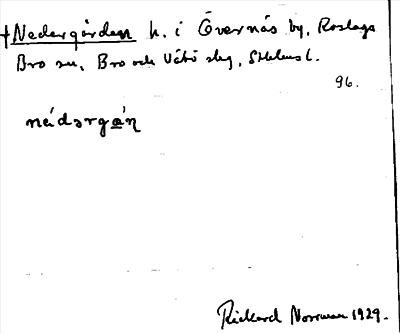 †Nedergården h. i Övernäs by, Roslags
Bro sn, Bro och Vätö slg, Sthlms l.
96.
nédərgɑ́ɳ
Rickard Norrman 1929.